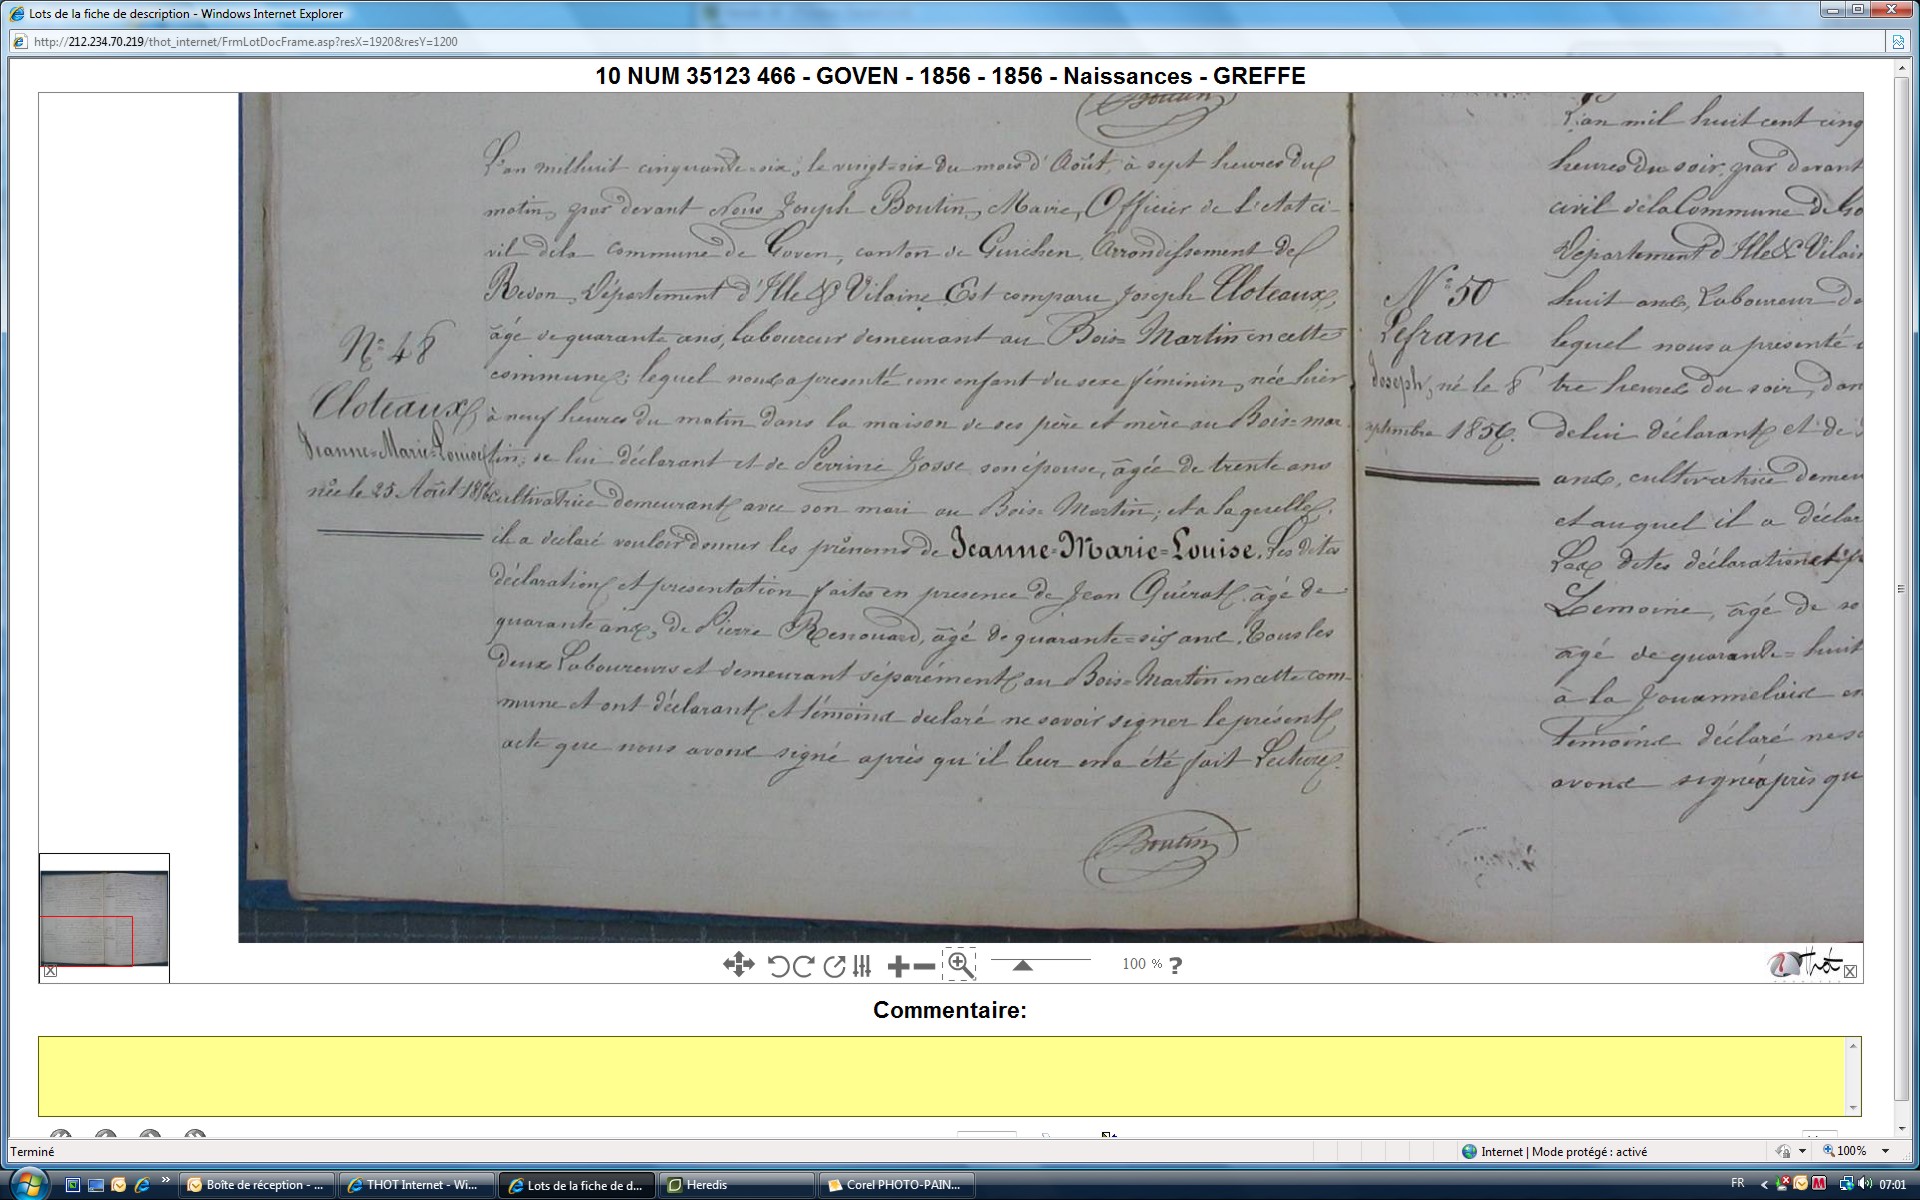 Lots de la fiche de description - Windows Internet Explorer
http://212.234.70.219/thot_internet/FrmLotDocFrame.asp?resX=1920&resY=1200
10 NUM 35123 466 - GOVEN - 1856 - 1856 - Naissances - GREFFE
Boutin
L'an mil huit cinquante-six, le vingt-six du mois d'Août, à sept heures du
matin, par devant Nous Joseph Boutin, Maire, Officier de l'état ci-
vil de la commune de Goven, canton de Guichen, Arrondissement de
Redon, Département d'Ille & Vilaine Est comparu Joseph Cloteaux,
âgé de quarante ans, laboureur demeurant au Bois-Martin en cette
commune; lequel nous a presenté une enfant du sexe féminin, née hier
à neuf heures du matin dans la maison de ses père et mère au Bois-mar
tin; de lui déclarant et de Perrine Josse son épouse, âgée de trente ans
cultivatrice demeurant avec son mari au Bois-Martin; et a laquelle
il a déclaré vouloir donner les prénoms de Jeanne=Marie=Louise. Les dites
déclaration et présentation faites en presence de Jean Quérat âgé de
quarante ans, de Pierre Renouard, âgé de quarante=six ans. Tous les
deux Laboureurs et demeurant séparément au Bois=Martin en cette com-
mune et ont déclarant et témoins declaré ne savoir signer le présent
acte que nous avons signé après qu'il leur en a été fait Lecture.
Boutin
N° 48
Cloteaux
Jeanne=Marie=Louise
née le 25 Août 1856
N° 50
Lefranc
Joseph, né le 8
eptembre 1856.
L'an mil huit cent cinq
heures du soir, par devant
civil de la Commune de Go
Département d'Ille & Vilain
huit ans, Laboureur de
lequel nous a présenté
tre heures du soir, dan
de lui déclarant et de
ans, cultivatrice demeu
et auquel il a déclar
Les dites déclaration et pr
Lemoine, âgé de so
âgé de quarante=huit
à la Jouannelais en
Témoins déclaré ne s
avons signé après qu
100 % ?
Thot
Commentaire:
Terminé
Internet | Mode protégé : activé
100%
Boîte de réception - ...
THOT Internet - Wi...
Lots de la fiche de d...
Heredis
Corel PHOTO-PAIN...
FR
07:01